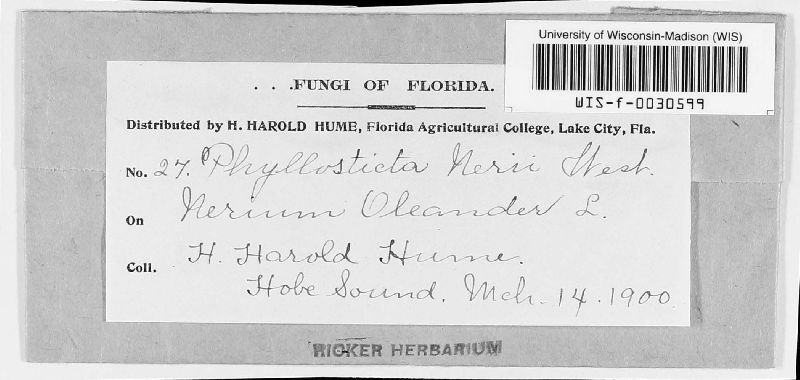 University of Wisconsin-Madison (WIS)
WIS-f-0030599
. . .FUNGI OF FLORIDA.
Distributed by H. HAROLD HUME, Florida Agricultural College, Lake City, Fla.
No. 27. Phyllosticta Nerii West.
On Nerium Oleander L.
Coll. H. Harold Hume.
Hobe Sound. Mch. 14. 1900
RICKER HERBARIUM